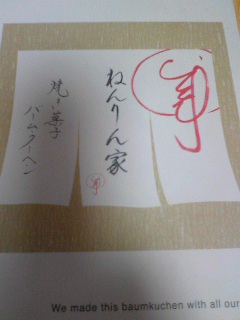 ねんりん家
焼き菓子
バームクーヘン
We made this baumkuchen with all our